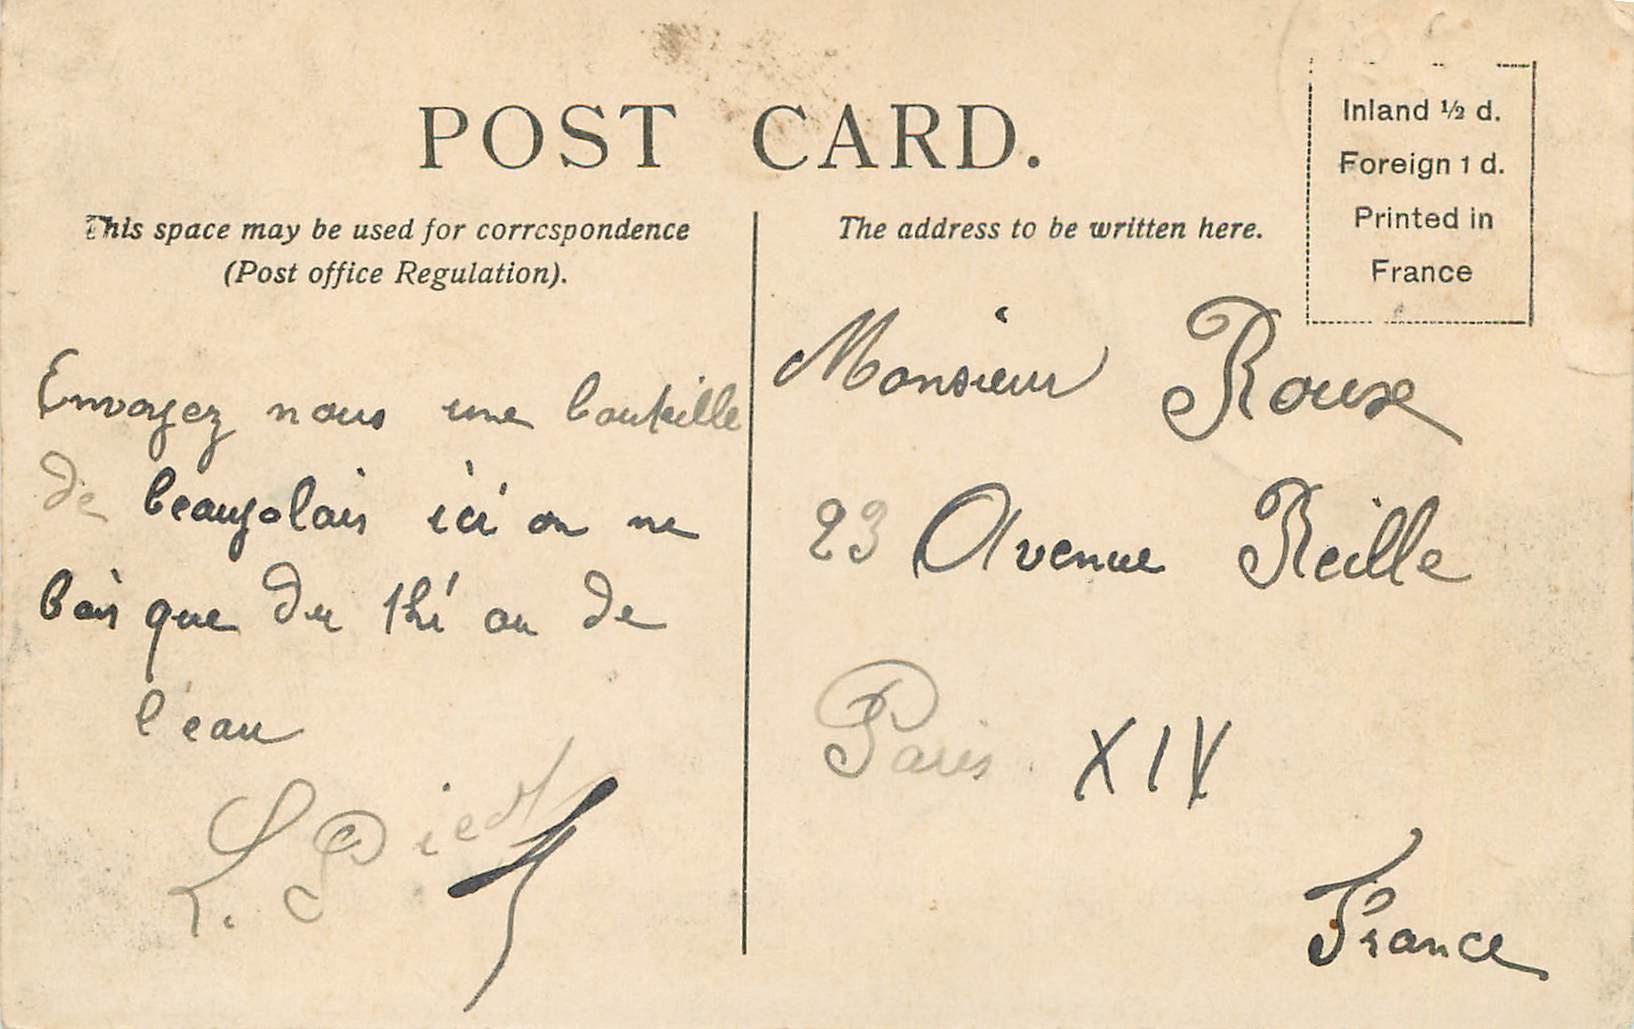 POST CARD.
This space may be used for correspondence
(Post office Regulation).
Envoyez nous une bouteille
de beaujolais ici on ne
bois que du thé ou de
l'eau
L. Piedt
The address to be written here.
Inland ½ d.
Foreign 1 d.
Printed in
France
Monsieur Roux
23 Avenue Reille
Paris XIV
France